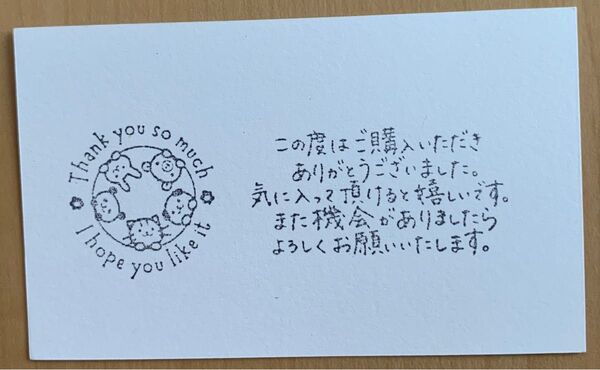 Thank you so much
I hope you like it
この度はご購入いただき
ありがとうございました。
気に入って頂けると嬉しいです。
また機会がありましたら
よろしくお願いいたします。